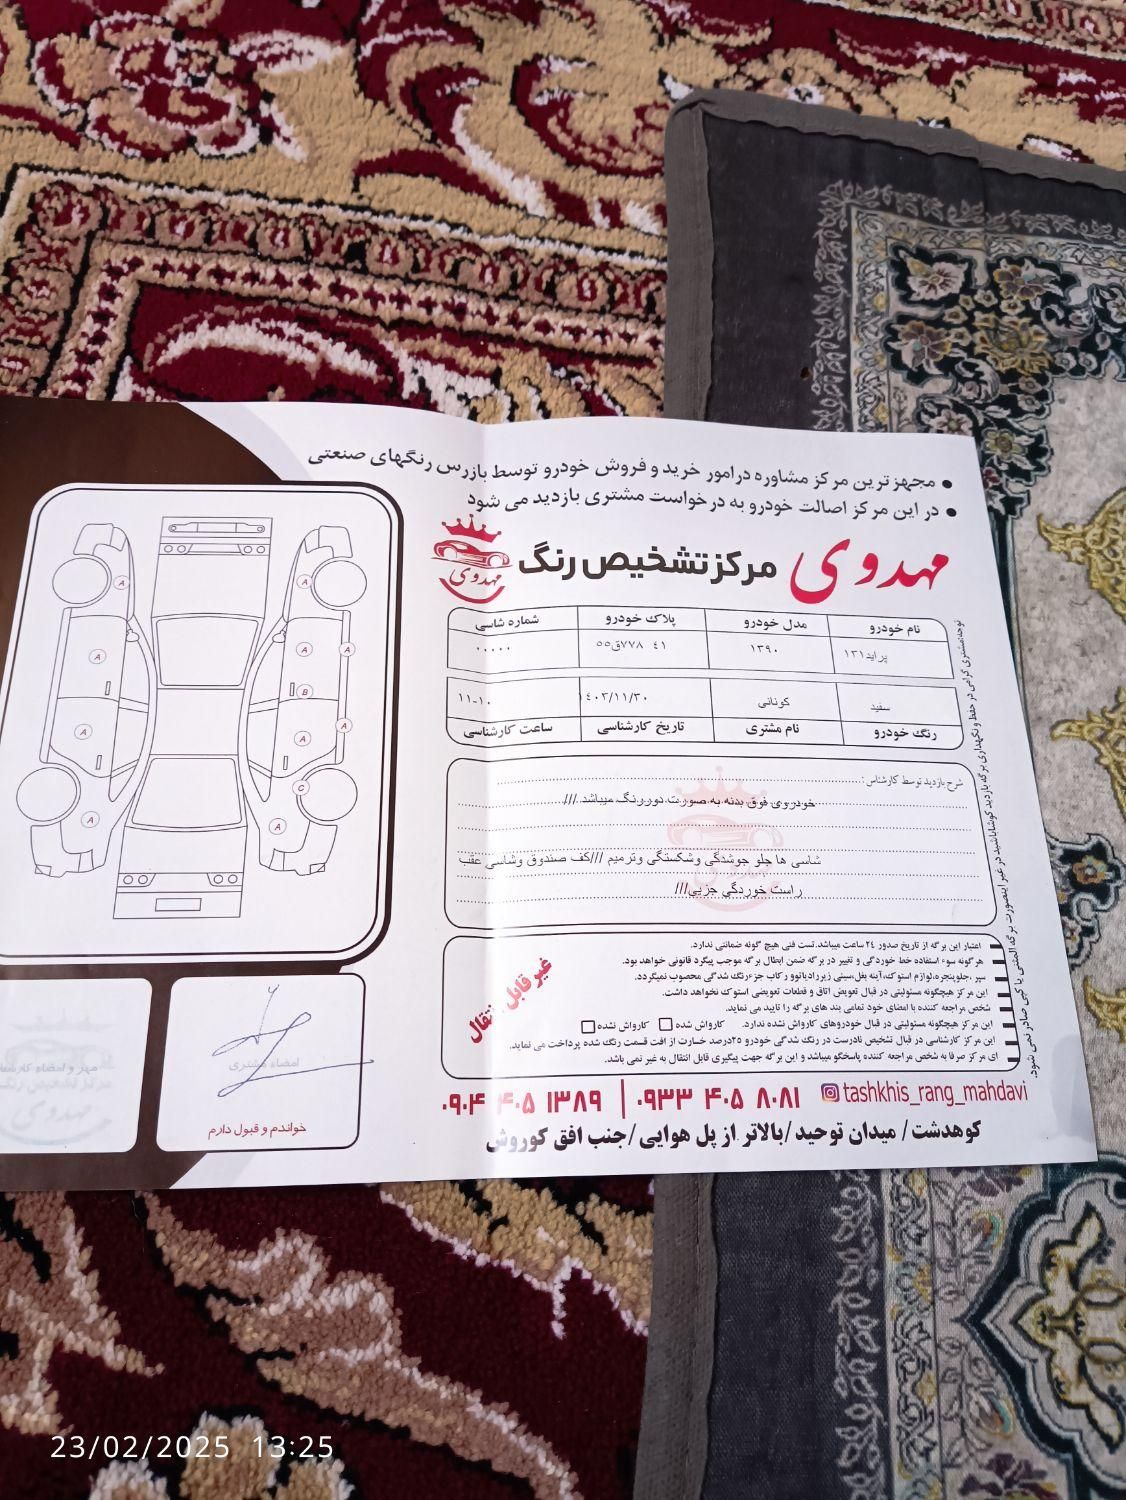 مجهز ترین مرکز مشاوره درامور خرید و فروش خودرو توسط بازرس رنگهای صنعتی
در این مرکز اصالت خودرو به درخواست مشتری بازدید می شود
مهدوی مرکز تشخیص رنگ
مهدوی
نام خودرو مدل خودرو پلاک خودرو شماره شاسی
پراید۱۳۱ ۱۳۹۰ ۴۱ ۷۷۸ق۵۵ ۰۰۰۰۰
سفید کونانی ۱۴۰۳/۱۱/۳۰ ۱۱-۱۰
رنگ خودرو نام مشتری تاریخ کارشناسی ساعت کارشناسی
شرح بازدید توسط کارشناس :
خودروی فوق بدنه به صورت دوررنگ میباشد ///
شاسی ها جلو جوشدگی وشکستگی وترمیم ///کف صندوق وشاسی عقب
راست خوردگی جزیی///
اعتبار این برگه از تاریخ صدور ۲۴ ساعت میباشد.تست فنی هیچ گونه ضمانتی ندارد.
هرگونه سوء استفاده خط خوردگی و تغییر در برگه ضمن ابطال برگه موجب پیگرد قانونی خواهد بود.
سپر ،جلوپنجره،لوازم استوک،آینه بغل،سینی زیررادیاتوو رکاب جزءرنگ شدگی محصوب نمیگردد.
این مرکز هیچگونه مسئولیتی در قبال تعویض اتاق و قطعات تعویضی استوک نخواهد داشت.
شخص مراجعه کننده با امضای خود تمامی بند های برگه را تایید می نماید.
این مرکز هیچگونه مسئولیتی در قبال خودروهای کارواش نشده ندارد. کارواش شده کارواش نشده
این مرکز کارشناسی در قبال تشخیص نادرست در رنگ شدگی خودرو ۲۵درصد خسارت از افت قسمت رنگ شده پرداخت می نماید.
ای مرکز صرفا به شخص مراجعه کننده پاسخگو میباشد و این برگه جهت پیگیری قابل انتقال به غیر نمی باشد.
غیر قابل انتقال
توجه:مشتری گرامی در حفظ و نگهداری برگه بازدید کوشاباشید در غیر اینصورت برگه المثنی یا کپی صادر نمی شود.
A
A
A
B
A
A
A
A
A
C
A
A
امضاء مشتری
خواندم و قبول دارم
مهر و امضاء
مرکز تشخیص رنگ
مهدوی
tashkhis_rang_mahdavi
۰۹۳۳ ۴۰۵ ۸۰۸۱ | ۰۹۰۴ ۴۰۵ ۱۳۸۹
کوهدشت/ میدان توحید /بالاتر از پل هوایی /جنب افق کوروش
23/02/2025 13:25